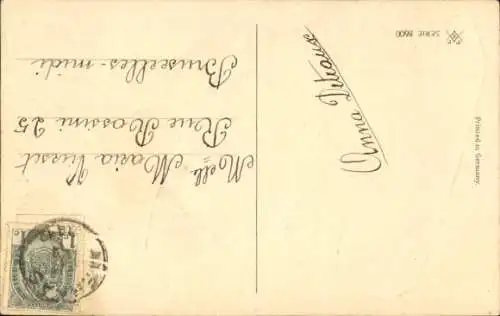 SERIE 8600
Anna Detraux
Melle Maria Viesset
Rue Rossini 25
Bruxelles-midi
Printed in Germany.